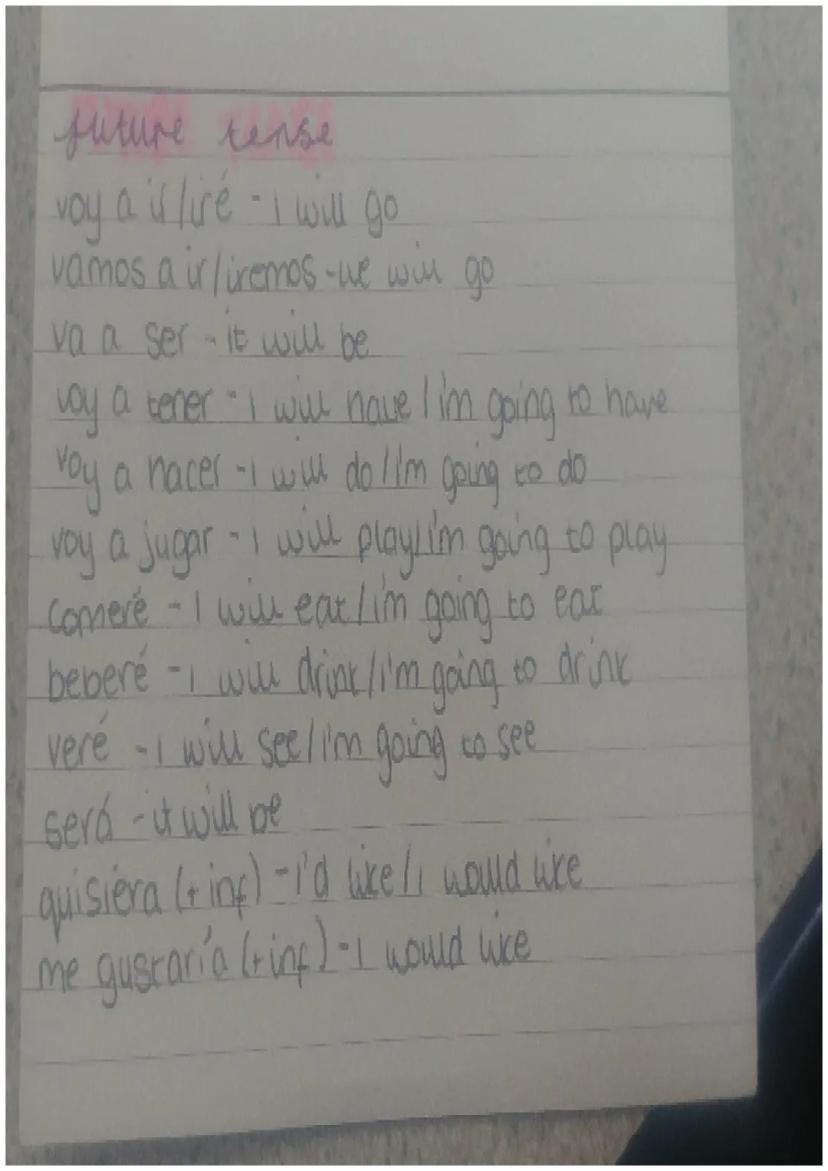 future tense
voy a ir/iré - I will go
vamos a ir/iremos - we will go
va a ser - it will be
voy a tener - I will have/i'm going to have
voy a hacer - I will do/I'm going to do
voy a jugar - I will play/i'm going to play
comeré - I will eat/i'm going to eat
beberé - I will drink/i'm going to drink
veré - I will see/i'm going to see
será - it will be
quisiéra (+ inf) - i'd like/I would like
me gustaría (+ inf) - I would like